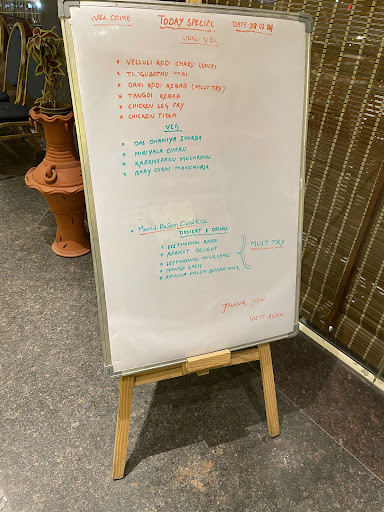 WELCOME TODAY SPECIAL DATE:
NON-VEG
* VELLULI KODI CHARU (SOUP)
* KODI
* DAHI KODI KEBAB (MUST TRY)
* TANGDI KEBAB
* CHICKEN LEG FRY
* CHICKEN TIKKA
VEG
* DAL DHANIYA SHORBA
* MIRIYALA CHARU
* KARRIVEPAKU MUSHROOM
* BABY CORN MANCHURIA
* RASAM, RICE
DESSERT & DRINKS
* SEETHAPHAL
* APRICOT DELIGHT
* SEETHAPHAL
* MANGO LASSI
MUST TRY
THANK YOU
VISIT AGAIN